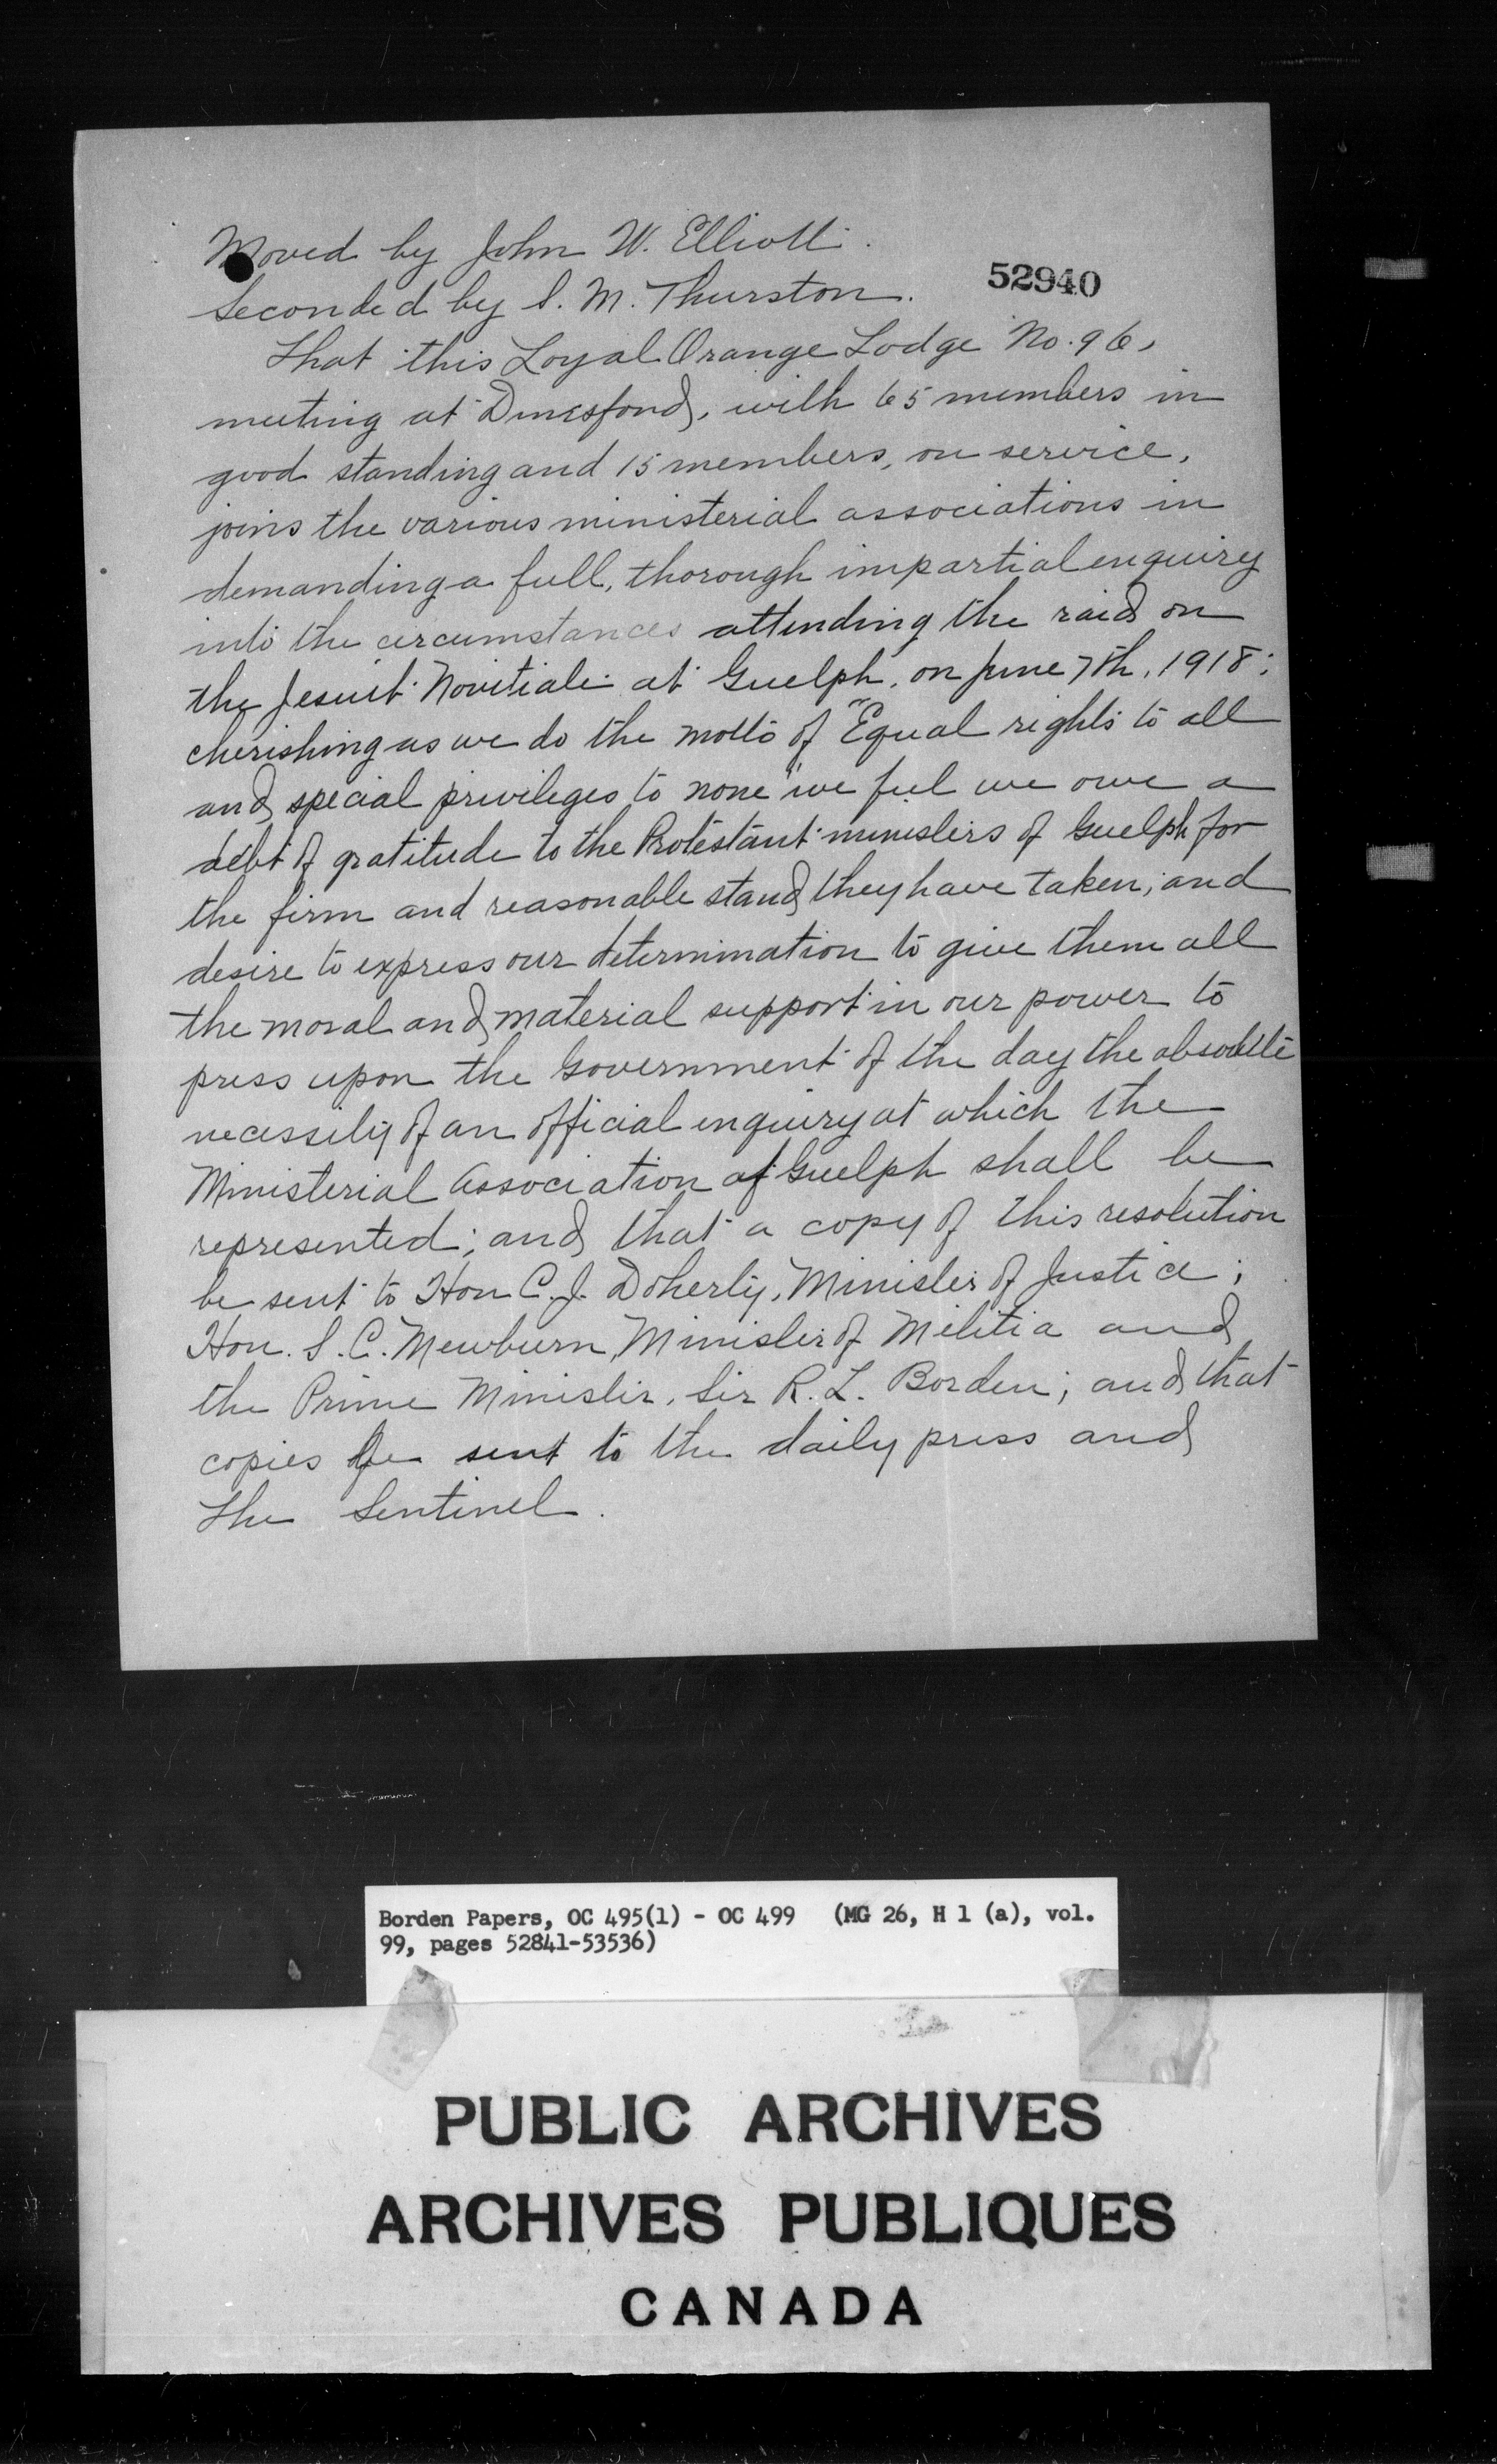 Moved by John W. Elliott.
Seconded by S. M. Thurston.
52940
That this Loyal Orange Lodge No. 96,
meeting at Dunsford, with 65 members in
good standing and 15 members, on service,
joins the various ministerial associations in
demanding a full, thorough impartial enquiry
into the circumstances attending the raid on
the Jesuit Novitiate at Guelph, on June 7th, 1918;
cherishing as we do the motto of "Equal rights to all
and special privileges to none" we feel we owe a
debt of gratitude to the Protestant ministers of Guelph for
the firm and reasonable stand they have taken; and
desire to express our determination to give them all
the moral and material support in our power to
press upon the Government of the day the absolute
necessity of an official enquiry at which the
Ministerial Association of Guelph shall be
represented; and that a copy of this resolution
be sent to Hon C. J. Doherty, Minister of Justice;
Hon. S. C. Mewburn, Minister of Militia and
the Prime Minister, Sir R. L. Borden; and that
copies be sent to the daily press and
The Sentinel.
Borden Papers, OC 495(1) - OC 499 (MG 26, H 1 (a), vol.
99, pages 52841-53536)
PUBLIC ARCHIVES
ARCHIVES PUBLIQUES
CANADA